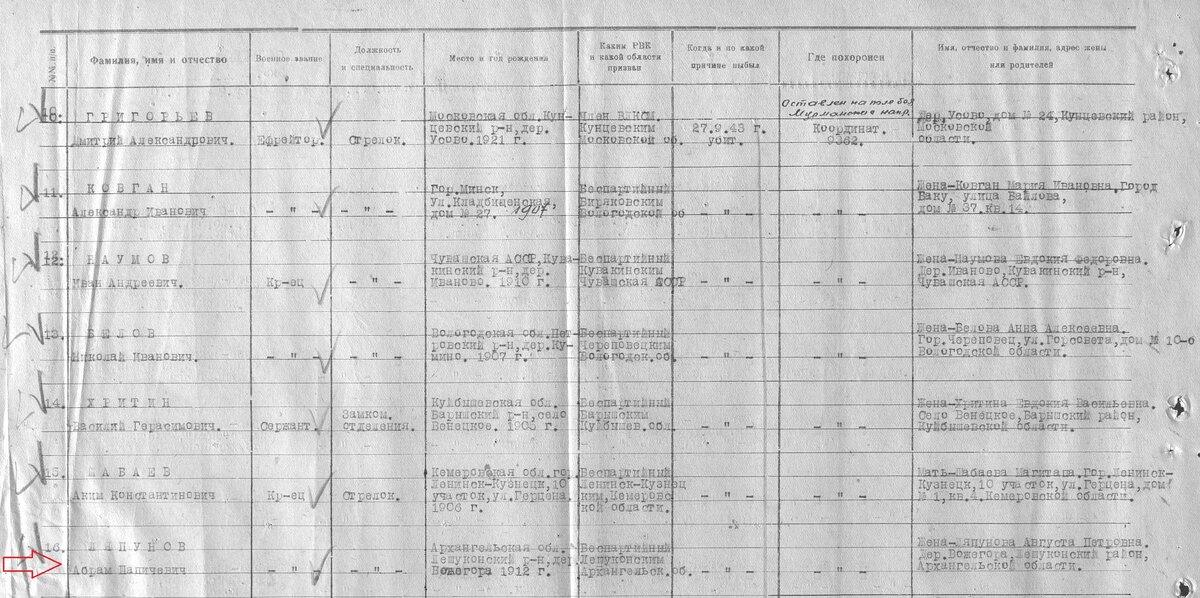 №№ п/п.
Фамилия, имя и отчество
Военное звание
Должность
и специальность
Место и год рождения
Каким РВК
и какой области
призван
Когда и по какой
причине выбыл
Где похоронен
Имя, отчество и фамилия, адрес жены
или родителей
10.
ГРИГОРЬЕВ
Дмитрий Александрович.
Ефрейтор.
Стрелок.
Московская обл. Кун-
цевский р-н, дер.
Усово. 1921 г.
Член ВЛКСМ.
Кунцевским
Московской об.
27.9.43 г.
убит.
Оставлен на поле боя
Мурманское напр.
Координат.
9362.
Дер. Усово, дом № 24, Кунцевский район,
Московской
области.
11.
КОВГАН
Александр Иванович
- " -
- " -
Гор. Минск,
Ул. Кладбищенская,
дом № 27. 1907.
Беспартийный
Биряковским
Вологодской об
- " -
- " -
Жена-Ковган Мария Ивановна. Город
Баку, улица Баилова,
дом № 37. кв. 14.
12.
НАУМОВ
Иван Андреевич.
Кр-ец
- " -
Чувашская АССР, Кува-
кинский р-н, дер.
Иваново. 1910 г.
Беспартийный
Кувакинским
Чувашская АССР
- " -
- " -
Жена-Наумова Евдокия Федоровна.
Дер. Иваново, Кувакинский р-н,
Чувашская АССР.
13.
БЕЛОВ
Николай Иванович.
- " -
- " -
Вологодская обл. Пет-
ровский р-н, дер. Ку-
мино. 1907 г.
Беспартийный
Череповецким
Вологодск. об.
- " -
- " -
Жена-Белова Анна Алексеевна.
Гор. Череповец, ул. Горсовета, дом № 10-о
Вологодской области.
14.
ХРИТИН
Василий Герасимович.
Сержант.
Замком.
отделения.
Куйбышевская обл.
Барышский р-н, село
Венецкое. 1903 г.
Беспартийный
Барышским
Куйбышев. обл
- " -
- " -
Жена-Хритина Евдокия Васильевна.
Село Венецкое, Барышский район,
Куйбышевской области.
15.
ШАБАЕВ
Аким Константинович
Кр-ец
Стрелок.
Кемеровская обл. гор.
Ленинск-Кузнецк, 10
участок, ул. Герцена.
1906 г.
Беспартийный
Ленинск-Кузнец
ким, Кемеровс
кой области.
- " -
- " -
Гор. Ленинск-
Кузнецк, 10 участок, ул. Герцена, дом
№ 1, кв. 4. Кемеровской области.
16.
ЛЯПУНОВ
Абрам
- " -
- " -
Архангельская обл.
Лешуконский р-н, дер.
Вожегора 1912 г.
Беспартийный
Лешуконским
Архангельск. об.
- " -
- " -
Жена-Ляпунова Августа Петровна.
Дер. Вожегора, Лешуконский район,
Архангельской области.